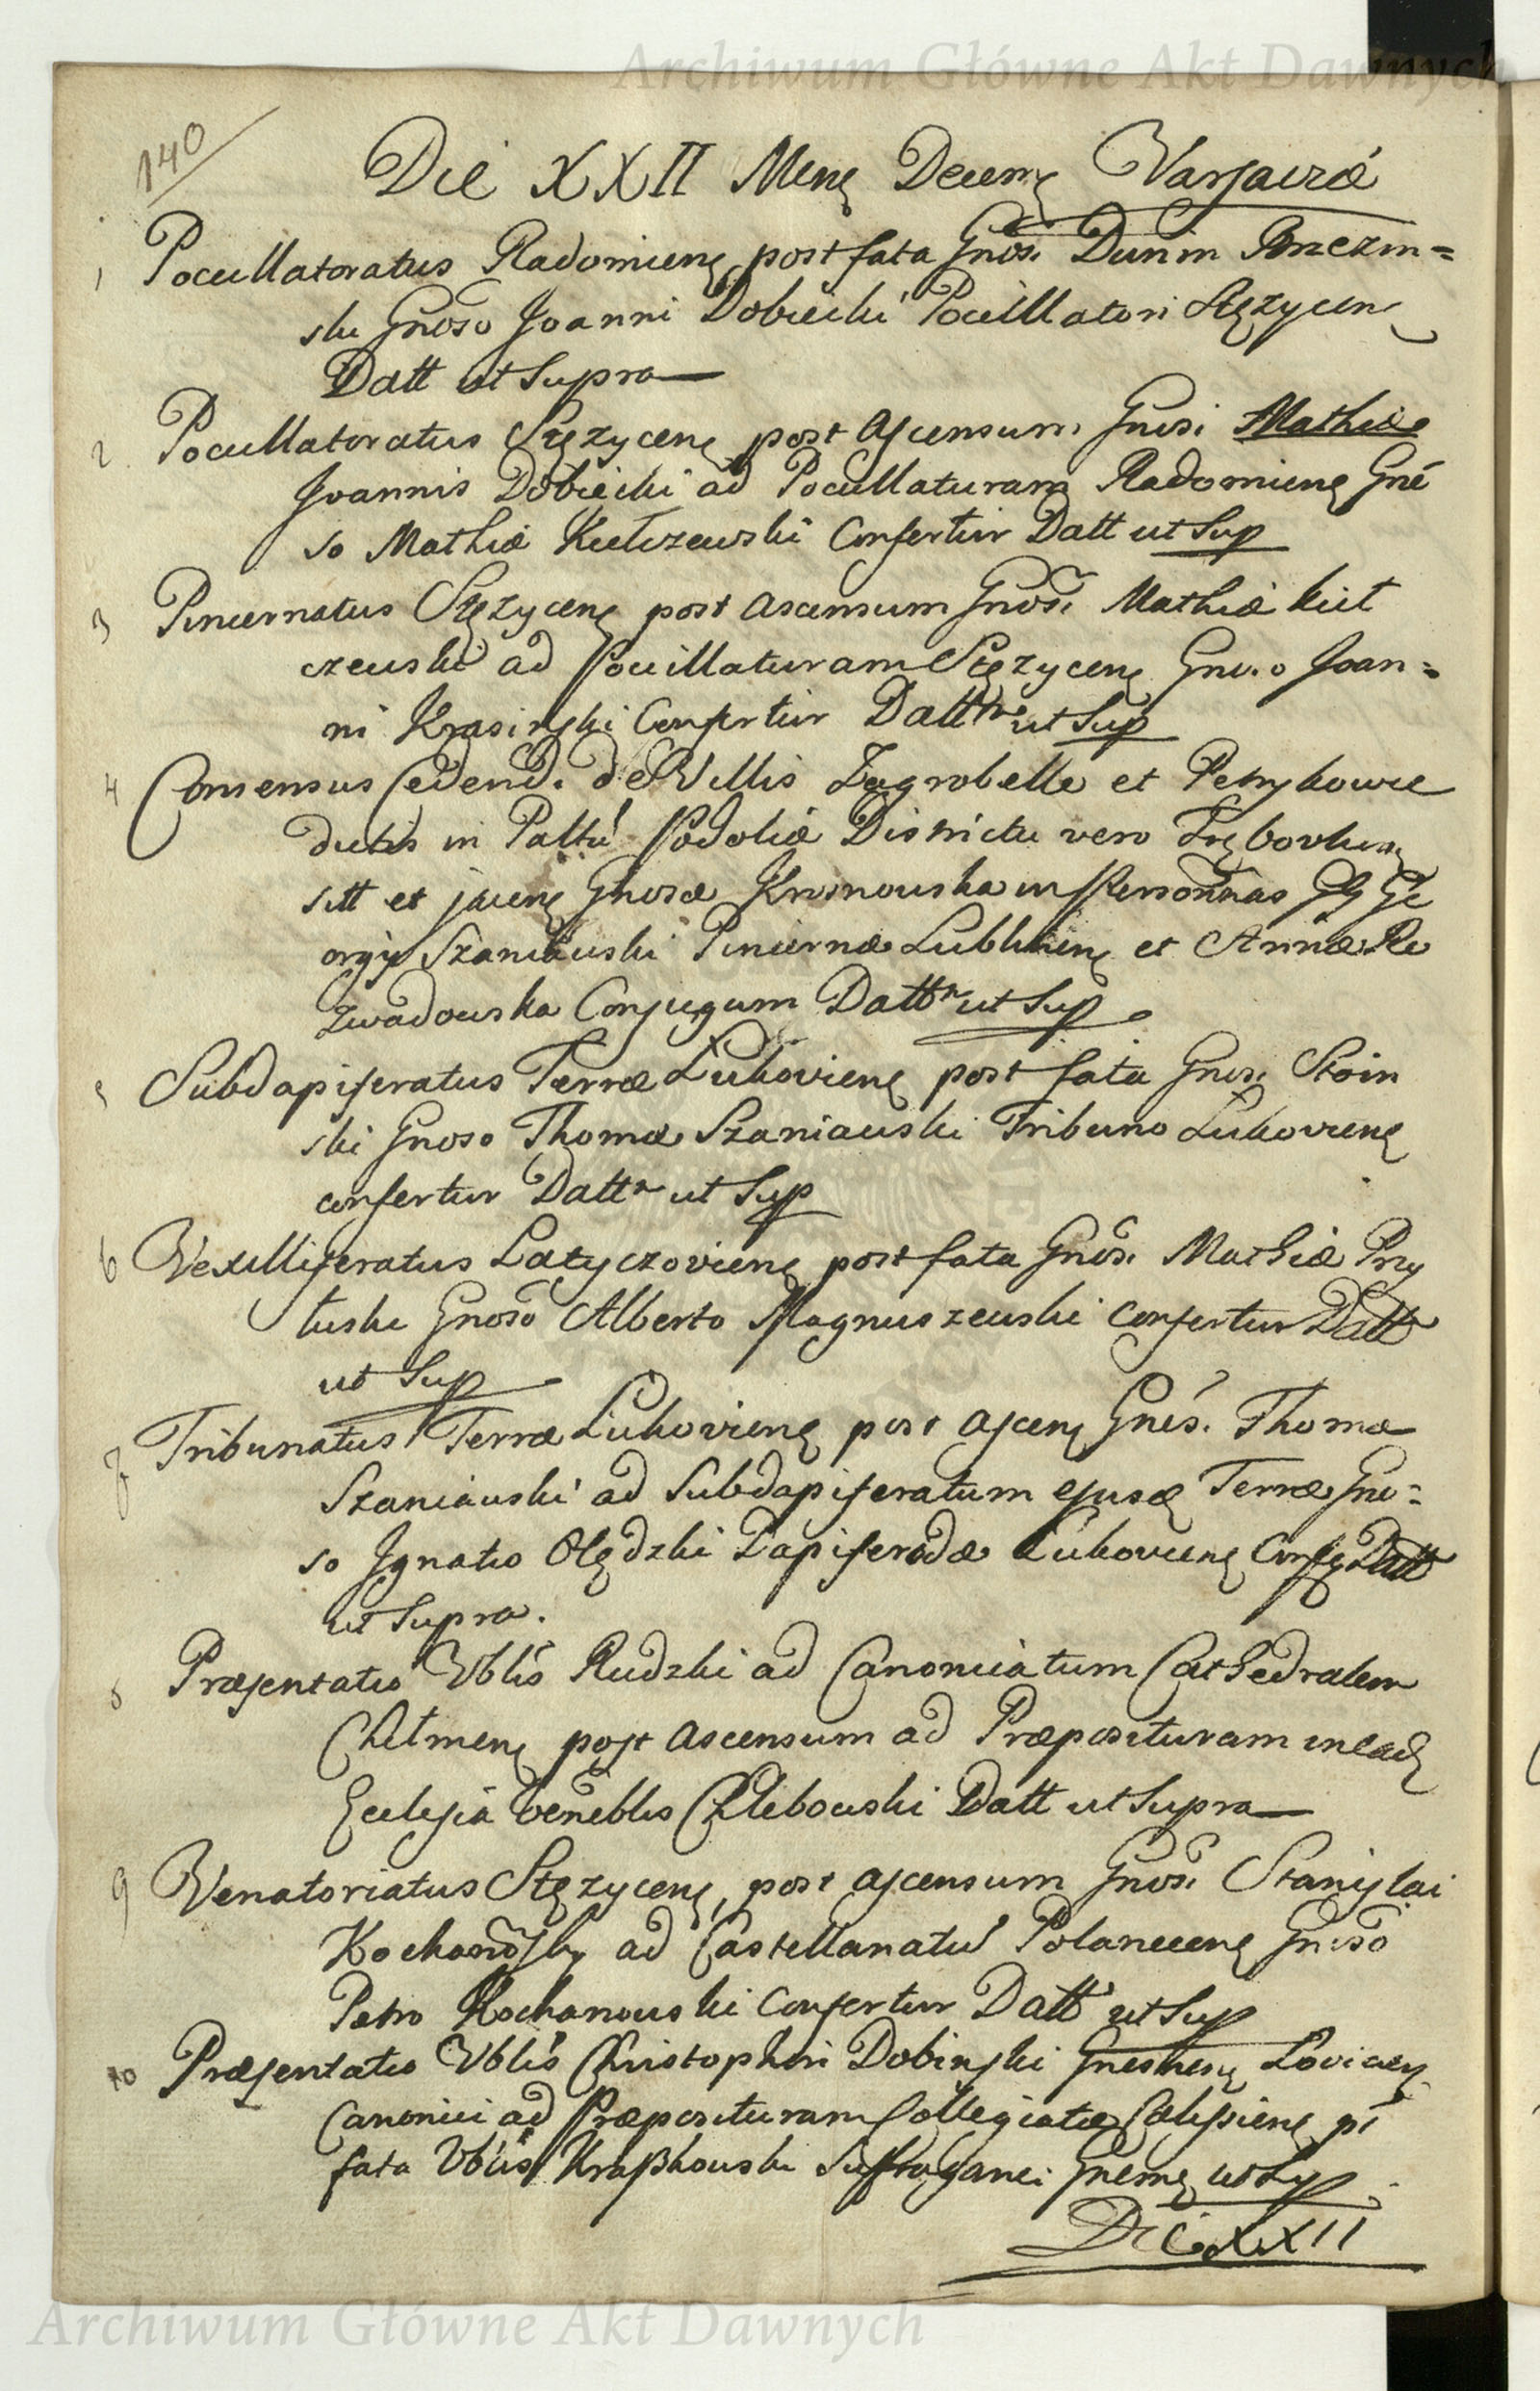 Archiwum Główne Akt Dawnych
140
Die XXII Menę Decemę Varsaviæ
1 Pocillatoratus Radomienę post fata Gnosi Dunin Brzezin=
ski Gnoso Joanni Dobiecki Pocillatori Stęzycenę
Datt ut Supra
2 Pocillatoratus Stęzycenę post Ascensum Gnosi Mathiæ
Joannis Dobiecki ad Pocillaturam Radomienę Gnē
so Mathiæ Kiełczewski Confertur Datt ut Sup
3 Pincernatus Stęzycenę post ascensum Gnosi Mathiæ Kieł
czewski ad Pocillaturam Stęzycenę Gnoso Joan=
ni Krasinski Confertur Datt ut Sup
4 Consensus Cedendi de Villis Zagrobelle et Petrykowce
dictis in Palttu Podoliæ Districtu vero Trębovliensę
sitt et jacenę Gnosæ Krosnowska in Personnas GG Ge
orgij Szaniawski Pincernæ Lublinenę et Annæ Re
zwadowska Conjugum Datt ut Sup
5 Subdapiferatus Terræ Lukovienę post fata Gnosi Stoin
ski Gnoso Thomæ Szaniawski Tribuno Lukovienę
confertur Datt ut Sup
6 Vexilliferatus Latyczovienę post fata Gnosi Mathiæ Przy
łuski Gnoso Alberto Magnuszewski confertur Datt
ut Sup
7 Tribunatus Terræ Lukovienę post ascenę Gnōsi Thomæ
Szaniawski ad Subdapiferatum ejusdę Terræ Gno=
so Ignatio Olędzki Dapiferidæ Lukovienę Confę Datt
ut Supra.
8 Præsentatio Vblis Rudzki ad Canonicatum Cathedralem
Chełmenę post ascensum ad Præposituram in eadę
Ecclesia Veneblis Chlebowski Datt ut Supra
9 Venatoriatus Stęzycenę post ascensum Gnosi Stanislai
Kochanowsky ad Castellanatū Polanecenę Gnoso
Petro Kochanowski Confertur Datt ut Sup
10 Præsentatio Vblis Christophori Dobinski Gnesnenę Lovicenę
Canonici ad Præposituram Collegiatæ Calissienę pt
fata Vblis Kraszkowski Suffraganei Gnesnę ut Sup
Die XXII
Archiwum Główne Akt Dawnych